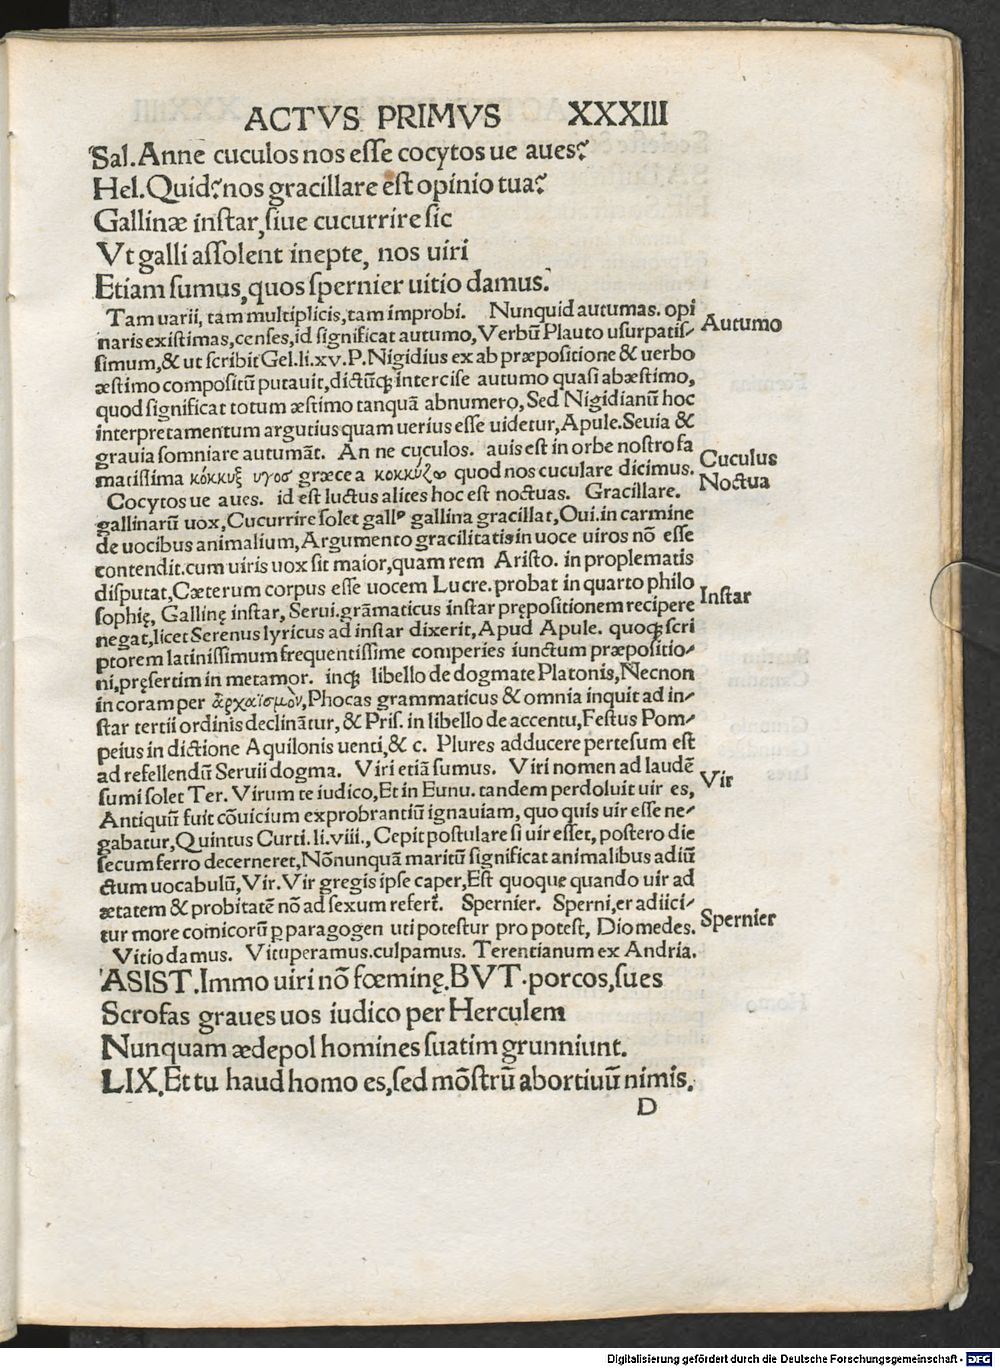 ACTVS PRIMVS XXXIII
Sal. Anne cuculos nos esse cocytos ue aues?
Hel. Quid? nos gracillare est opinio tua?
Gallinæ instar, siue cucurrire sic
Vt galli assolent inepte, nos uiri
Etiam sumus, quos spernier uitio damus.
Tam uarii, tam multiplicis, tam improbi. Nunquid autumas. opi
naris existimas, censes, id significat autumo, Verbũ Plauto usurpatis-
simum, & ut scribit Gel. li. xv. P. Nigidius ex ab præpositione & uerbo
æstimo compositũ putauit, dictũqꝫ intercise autumo quasi abæstimo,
quod significat totum æstimo tanquã abnumero, Sed Nigidianũ hoc
interpretamentum argutius quam uerius esse uidetur, Apule. Seuia &
grauia somniare autumãt. An ne cuculos. auis est in orbe nostro fa
matissima κόκκυξ υγοσ græce a κοκκύζω quod nos cuculare dicimus.
Cocytos ue aues. id est luctus alites hoc est noctuas. Gracillare.
gallinarũ uox, Cucurrire solet gallꝰ gallina gracillat, Oui. in carmine
de uocibus animalium, Argumento gracilitatis in uoce uiros nõ esse
contendit. cum uiris uox sit maior, quam rem Aristo. in proplematis
disputat, Cæterum corpus esse uocem Lucre. probat in quarto philo
sophię, Gallinę instar, Serui. grãmaticus instar prępositionem recipere
negat, licet Serenus lyricus ad instar dixerit, Apud Apule. quoqꝫ scri
ptorem latinissimum frequentissime comperies iunctum præpositio-
ni, pręsertim in metamor. inqꝫ libello de dogmate Platonis, Necnon
in coram per ἀρχαϊσμὸν, Phocas grammaticus & omnia inquit ad in-
star tertii ordinis declinãtur, & Pris. in libello de accentu, Festus Pom-
peius in dictione Aquilonis uenti, & c. Plures adducere pertesum est
ad refellendũ Seruii dogma. Viri etiã sumus. Viri nomen ad laudẽ
sumi solet Ter. Virum te iudico, Et in Eunu. tandem perdoluit uir es,
Antiquũ fuit cõuicium exprobrantiũ ignauiam, quo quis uir esse ne-
gabatur, Quintus Curti. li. viii., Cepit postulare si uir esset, postero die
secum ferro decerneret, Nõnunquã maritũ significat animalibus adiũ
ctum uocabulũ, Vir. Vir gregis ipse caper, Est quoque quando uir ad
ætatem & probitatẽ nõ ad sexum refert̃. Spernier. Sperni, er adiici-
tur more comicorũ ꝑ paragogen uti potestur pro potest, Diomedes.
Vitio damus. Vituperamus. culpamus. Terentianum ex Andria.
ASIST. Immo uiri nõ fœminę. BVT. porcos, sues
Scrofas graues uos iudico per Herculem
Nunquam ædepol homines suatim grunniunt.
LIX. Et tu haud homo es, sed mõstrũ abortiuũ nimis.
D
Autumo
Cuculus
Noctua
Instar
Vir
Spernier
Digitalisierung gefördert durch die Deutsche Forschungsgemeinschaft - DFG